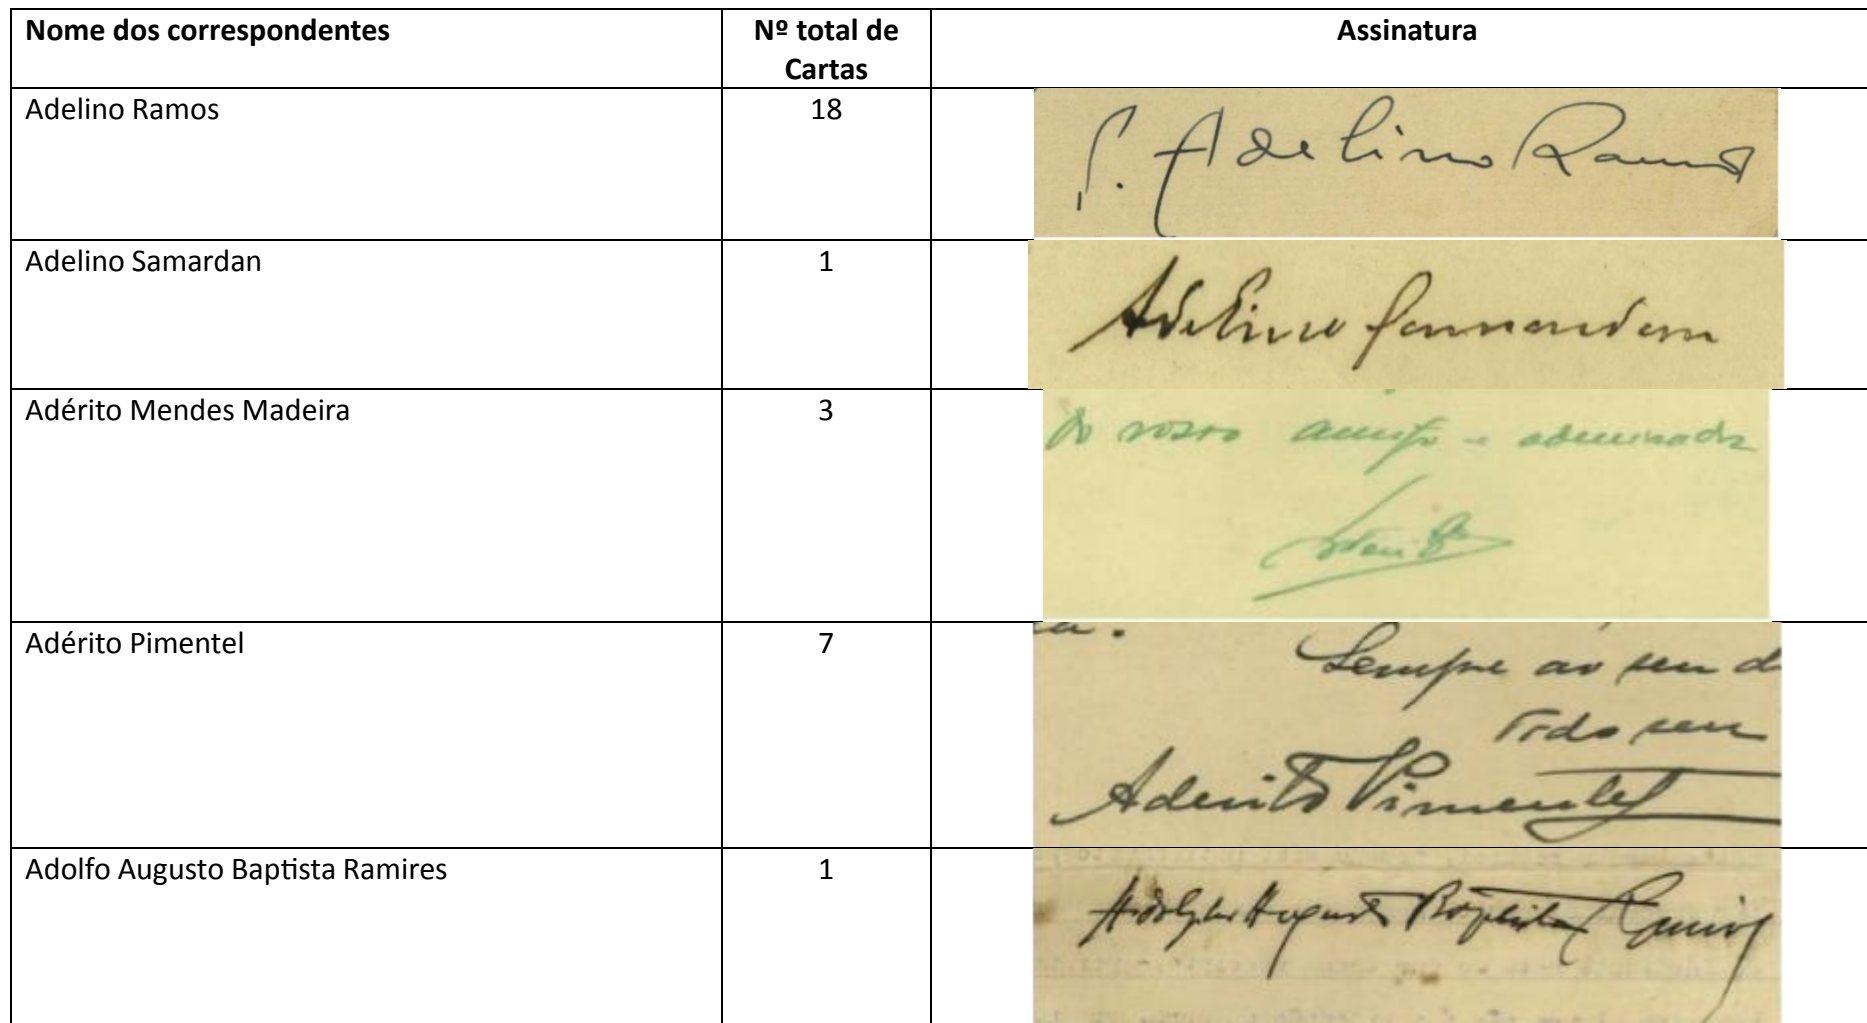 Nome dos correspondentes
Nº total de
Cartas
Assinatura
Adelino Ramos
18
P. Adelino Ramos
Adelino Samardan
1
Adelino Samardan
Adérito Mendes Madeira
3
do vosso amigo e admirador
Adérito Pimentel
7
Sempre ao seu d
Todo seu
Aderito Pimentel
Adolfo Augusto Baptista Ramires
1
Adolpho Augusto Baptista Ramires